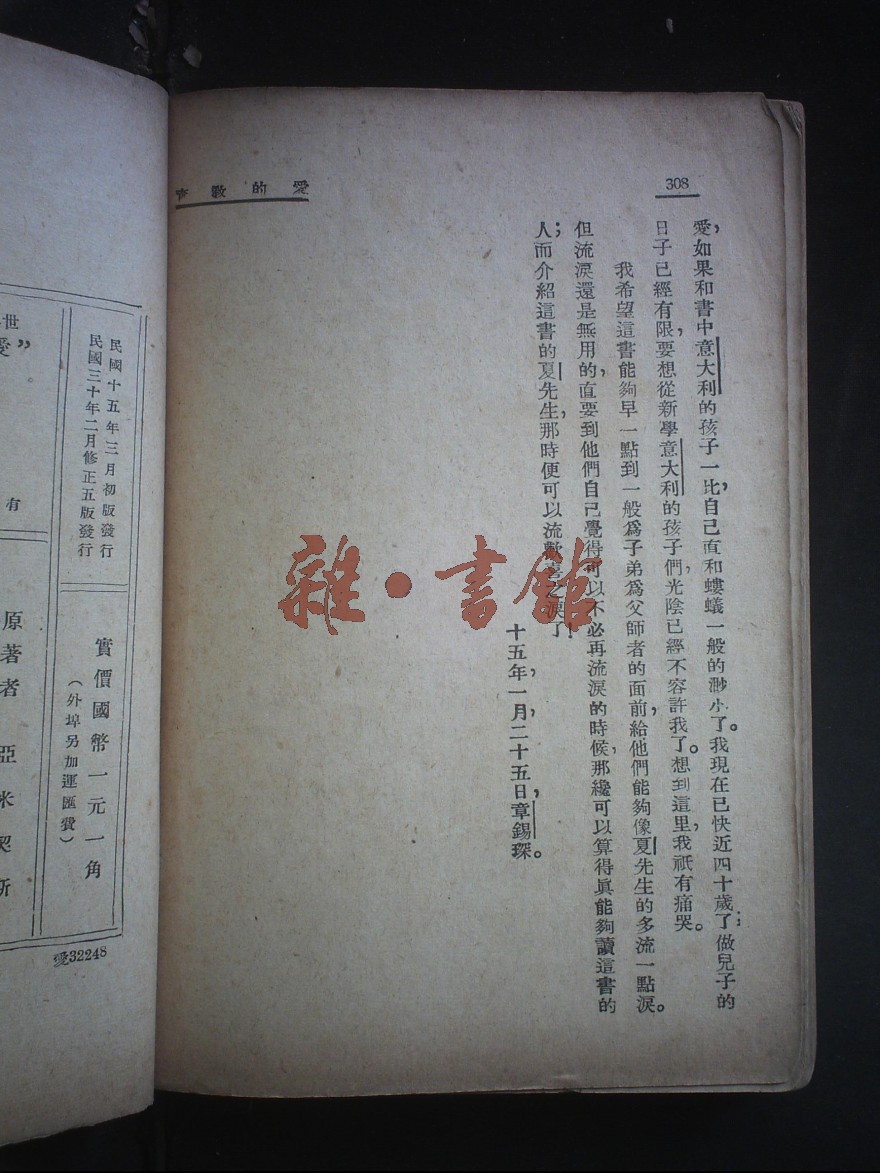 308
愛的教育
愛,如果和書中意大利的孩子一比,自己直和螻蟻一般的渺小了。我現在已快近四十歲了;做兒子的
日子已經有限,要想從新學意大利的孩子們,光陰已經不容許我了。想到這里,我祇有痛哭。
我希望這書能夠早一點到一般爲子弟爲父師者的面前,給他們能夠像夏先生的多流一點淚。
但流淚還是無用的,直要到他們自己覺得可以不必再流淚的時候,那纔可以算得眞能夠讀這書的
人;而介紹這書的夏先生,那時便可以流歡喜之淚了!
十五年,一月,二十五日,章錫琛。
雜·書館
民國十五年三月初版發行
民國三十年二月修正五版發行
實價國幣一元一角
(外埠另加運匯費)
世
愛”
有
原著者 亞米契斯
愛32248